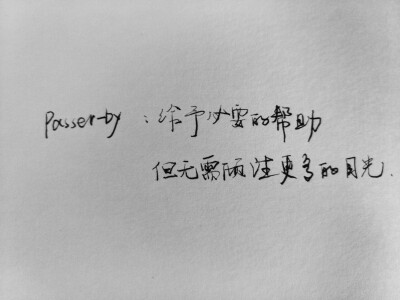 Passer-by：给予必要的帮助
但无需倾注更多的目光.